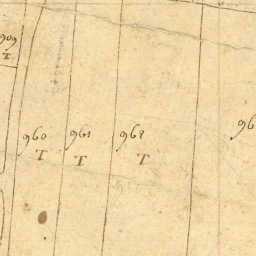 909
T
960
T
961
T
962
T